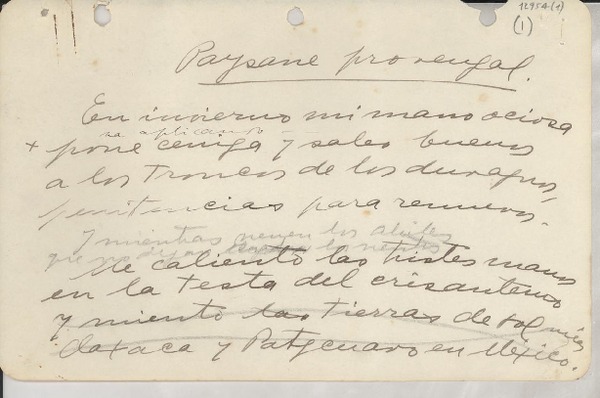 12954(1)
(1)
Paysane provenzal.
En invierno mi mano ociosa
va aplicando
+ pone ceniza y sales buenas
a los troncos de los duraznos,
penitencias para renuevos.
y mientras vienen los
que no dejan
Me caliento las tristes manos
en la testa del crisantemo
y miento las tierras de sol mías
Oaxaca y Patzcuaro en México.